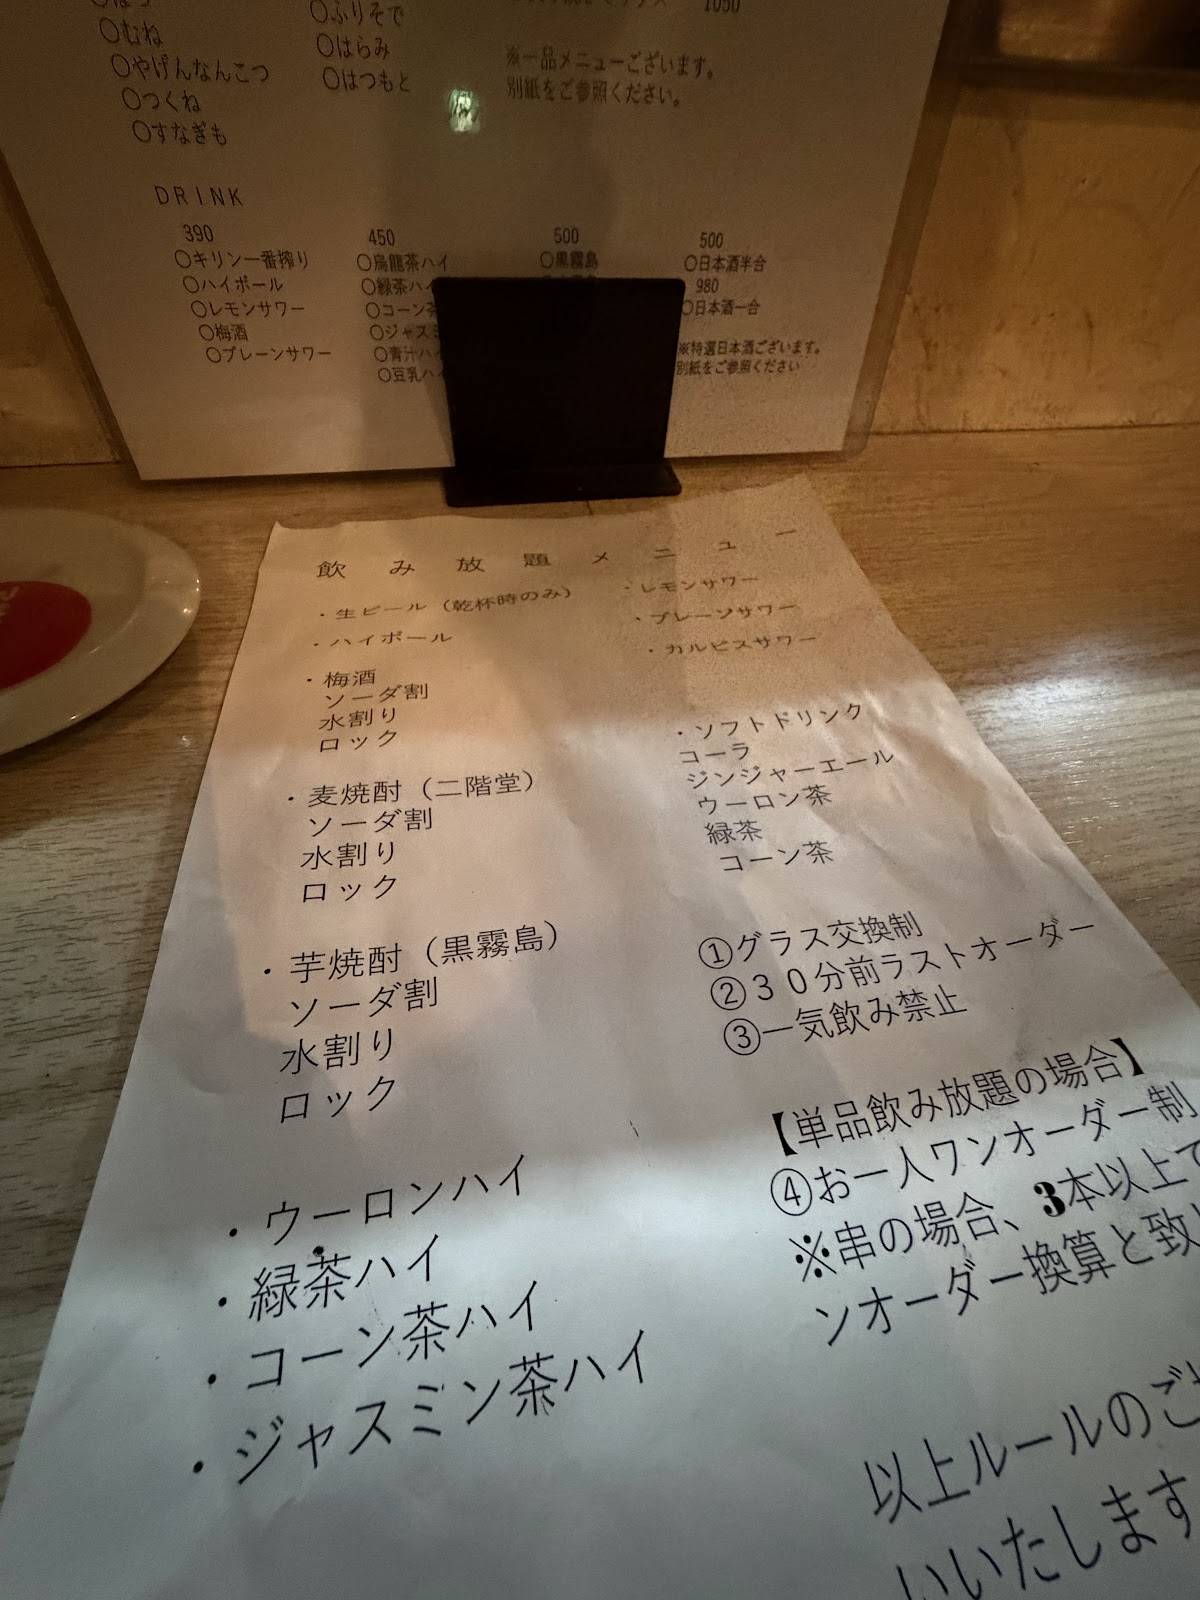 ○むね
○やげんなんこつ
○つくね
○すなぎも
○ふりそで
○はらみ
○はつもと
1050
※一品メニューございます。
別紙をご参照ください。
DRINK
390
○キリン一番搾り
○ハイボール
○レモンサワー
○梅酒
○プレーンサワー
450
○烏龍茶ハイ
○緑茶ハイ
○コーン茶
○ジャスミ
○青汁ハイ
○豆乳ハイ
500
○黒霧島
500
○日本酒半合
980
○日本酒一合
※特選日本酒ございます。
別紙をご参照ください
飲み放題メニュー
・生ビール（乾杯時のみ）
・ハイボール
・梅酒
ソーダ割
水割り
ロック
・麦焼酎（二階堂）
ソーダ割
水割り
ロック
・芋焼酎（黒霧島）
ソーダ割
水割り
ロック
・ウーロンハイ
・緑茶ハイ
・コーン茶ハイ
・ジャスミン茶ハイ
・レモンサワー
・プレーンサワー
・カルピスサワー
・ソフトドリンク
コーラ
ジンジャーエール
ウーロン茶
緑茶
コーン茶
①グラス交換制
②３０分前ラストオーダー
③一気飲み禁止
【単品飲み放題の場合】
④お一人ワンオーダー制
※串の場合、3本以上で
ンオーダー換算と致
以上ルールのご
いいたします